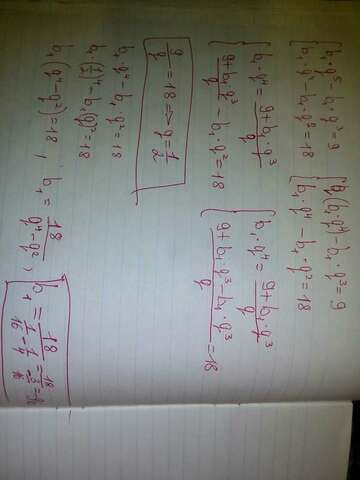 b₁·q⁵ - b₁·q³ = 9 q(b₁·q⁴) - b₁·q³ = 9
b₁·q⁴ - b₁·q² = 18 b₁·q⁴ - b₁·q² = 18
b₁·q⁴ = (9+b₁·q³)/q b₁·q⁴ = (9+b₁·q³)/q
(9+b₁·q³)/q - b₁·q² = 18 (9+b₁·q³-b₁·q³)/q = 18
9/q = 18 => q = 1/2
b₁·q⁴ - b₁·q² = 18
b₁(1/2)⁴ - b₁(1/2)² = 18
b₁(q⁴-q²) = 18, b₁ = 18/(q⁴-q²), b₁ = 18/(1/16-1/4) = 18/(-3/16) =